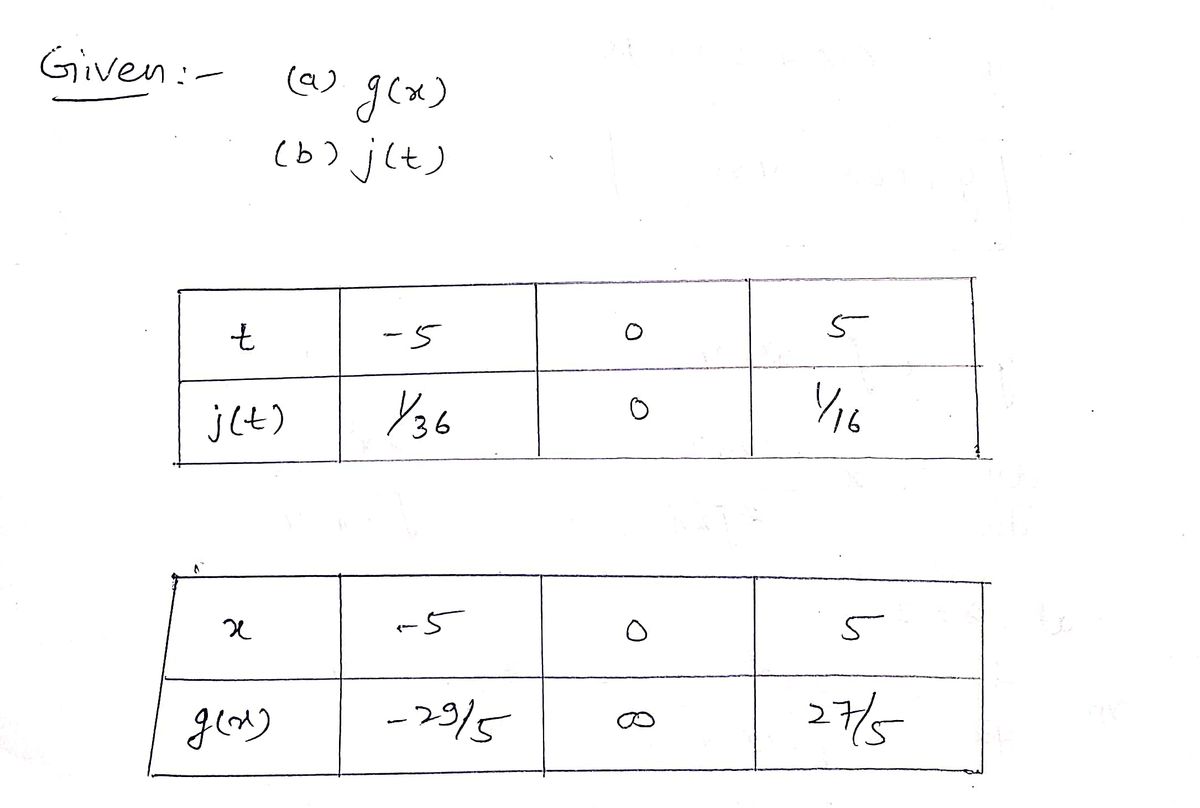 Given:- (a) g(x)
(b) j(t)
t -5 0 5
j(t) 1/36 0 1/16
x -5 0 5
g(x) -29/5 ∞ 27/5